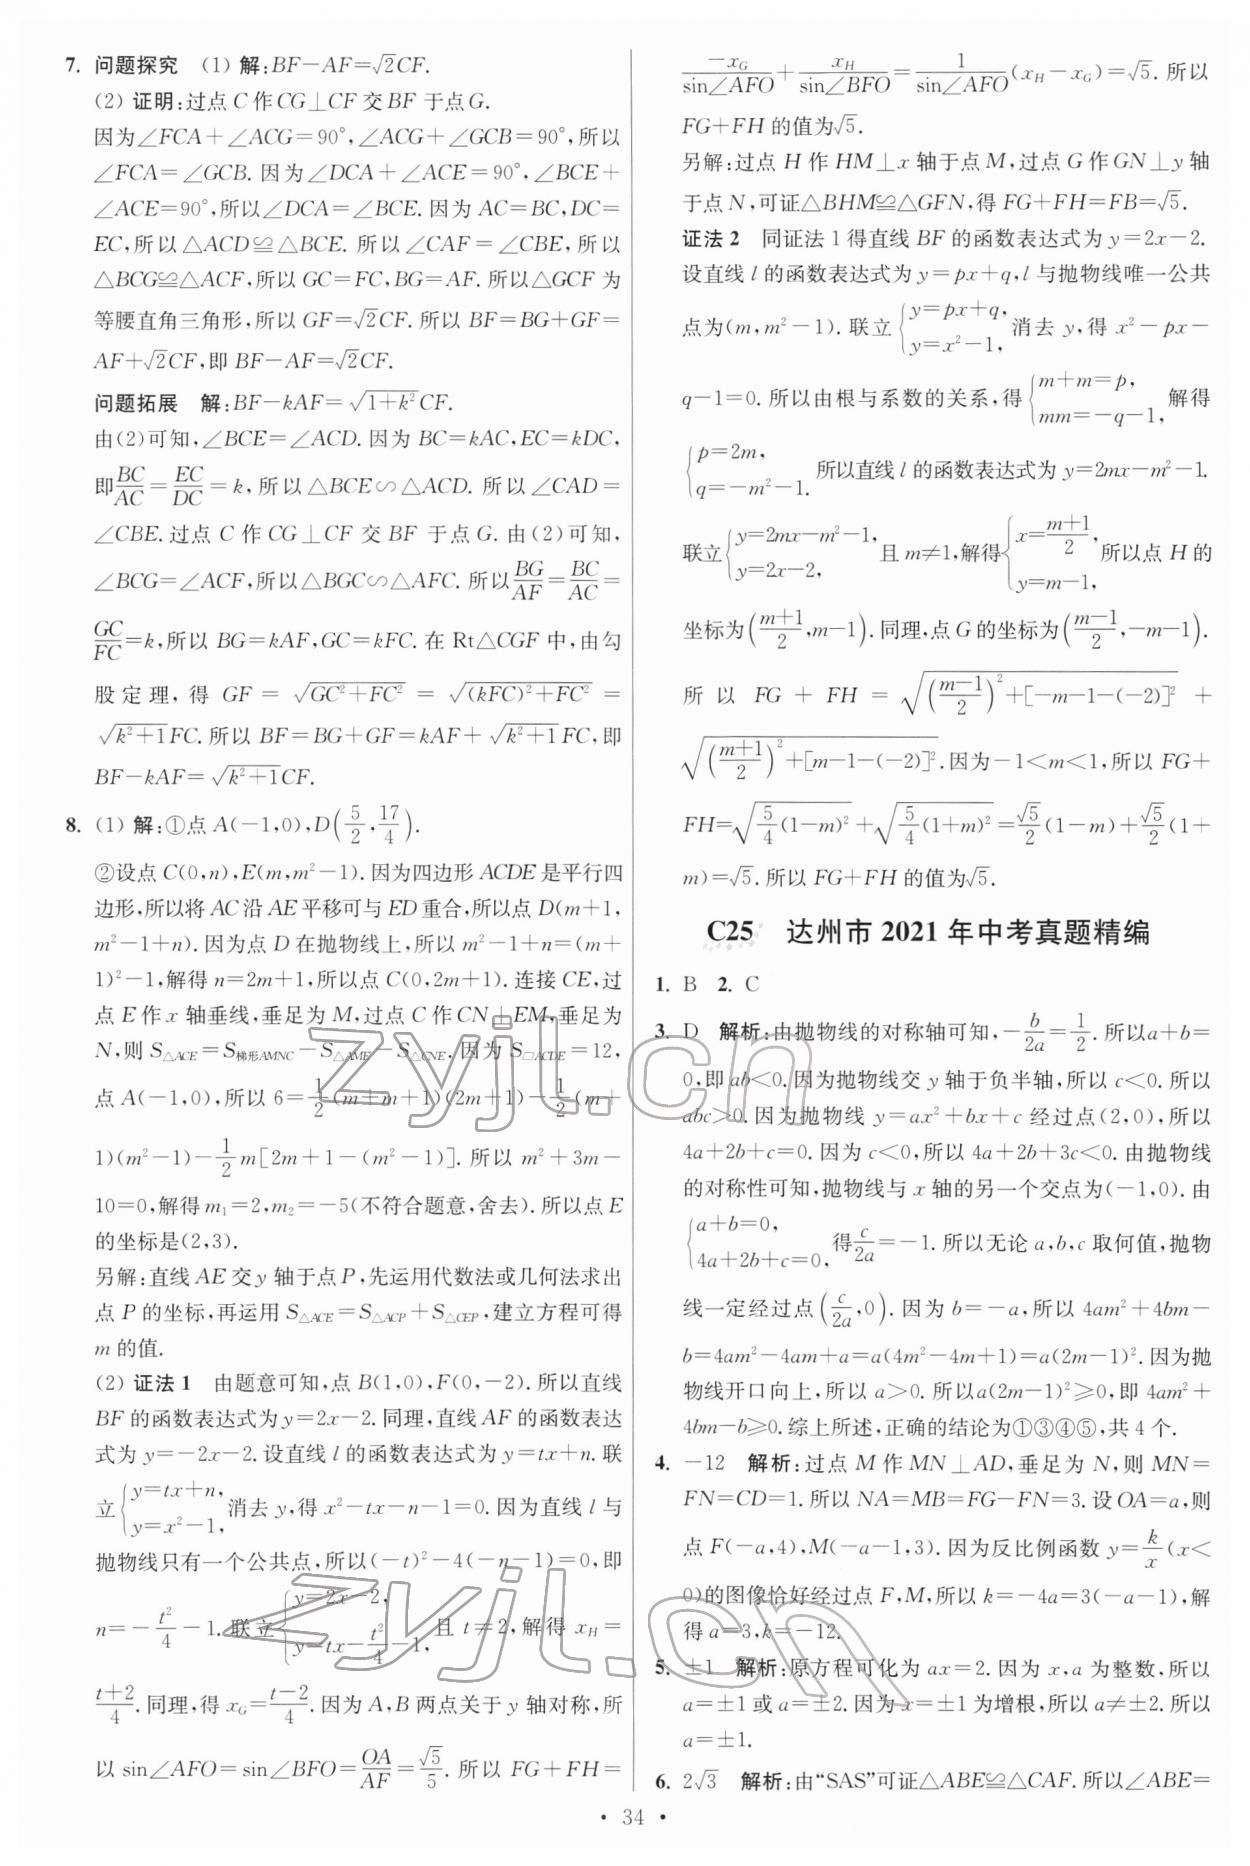 7. 问题探究 (1) 解:BF−AF=√2CF.
(2) 证明:过点 C 作 CG⊥CF 交 BF 于点 G.
因为∠FCA+∠ACG=90°,∠ACG+∠GCB=90°,所以
∠FCA=∠GCB. 因为∠DCA+∠ACE=90°,∠BCE+
∠ACE=90°,所以∠DCA=∠BCE. 因为 AC=BC,DC=
EC,所以△ACD≌△BCE. 所以∠CAF=∠CBE,所以
△BCG≌△ACF,所以 GC=FC,BG=AF. 所以△GCF 为
等腰直角三角形,所以 GF=√2CF. 所以 BF=BG+GF=
AF+√2CF,即 BF−AF=√2CF.
问题拓展 解:BF−kAF=√(1+k²)CF.
由(2)可知,∠BCE=∠ACD. 因为 BC=kAC,EC=kDC,
即BC/AC=EC/DC=k,所以△BCE∽△ACD. 所以∠CAD=
∠CBE. 过点 C 作 CG⊥CF 交 BF 于点 G. 由(2)可知,
∠BCG=∠ACF,所以△BGC∽△AFC. 所以BG/AF=BC/AC=
GC/FC=k,所以 BG=kAF,GC=kFC. 在 Rt△CGF 中,由勾
股定理,得 GF=√(GC²+FC²)=√((kFC)²+FC²)=
√(k²+1)FC. 所以 BF=BG+GF=kAF+√(k²+1)FC,即
BF−kAF=√(k²+1)CF.
8. (1) 解:①点 A(−1,0),D(5/2,17/4).
②设点 C(0,n),E(m,m²−1). 因为四边形 ACDE 是平行四
边形,所以将 AC 沿 AE 平移可与 ED 重合,所以点 D(m+1,
m²−1+n). 因为点 D 在抛物线上,所以 m²−1+n=(m+
1)²−1,解得 n=2m+1,所以点 C(0,2m+1). 连接 CE,过
点 E 作 x 轴垂线,垂足为 M,过点 C 作 CN⊥EM,垂足为
N,则 S△ACE=S梯形AMNC−S△AME−S△CNE. 因为 S□ACDE=12,
点 A(−1,0),所以 6=1/2(m+m+1)(2m+1)−1/2(m+
1)(m²−1)−1/2m[2m+1−(m²−1)]. 所以 m²+3m−
10=0,解得 m₁=2,m₂=−5(不符合题意,舍去). 所以点 E
的坐标是(2,3).
另解:直线 AE 交 y 轴于点 P,先运用代数法或几何法求出
点 P 的坐标,再运用 S△ACE=S△ACP+S△CEP,建立方程可得
m 的值.
(2) 证法 1 由题意可知,点 B(1,0),F(0,−2). 所以直线
BF 的函数表达式为 y=2x−2. 同理,直线 AF 的函数表达
式为 y=−2x−2. 设直线 l 的函数表达式为 y=tx+n. 联
立{y=tx+n, y=x²−1,消去 y,得 x²−tx−n−1=0. 因为直线 l 与
抛物线只有一个公共点,所以(−t)²−4(−n−1)=0,即
n=−t²/4−1. 联立{y=2x−2, y=tx−t²/4−1,且 t≠2,解得 xH=
(t+2)/4. 同理,得 xG=(t−2)/4. 因为 A,B 两点关于 y 轴对称,所
以 sin∠AFO=sin∠BFO=OA/AF=√5/5. 所以 FG+FH=
−xG/sin∠AFO+xH/sin∠BFO=1/sin∠AFO(xH−xG)=√5. 所以
FG+FH 的值为√5.
另解:过点 H 作 HM⊥x 轴于点 M,过点 G 作 GN⊥y 轴
于点 N,可证△BHM≌△GFN,得 FG+FH=FB=√5.
证法 2 同证法 1 得直线 BF 的函数表达式为 y=2x−2.
设直线 l 的函数表达式为 y=px+q,l 与抛物线唯一公共
点为(m,m²−1). 联立{y=px+q, y=x²−1,消去 y,得 x²−px−
q−1=0. 所以由根与系数的关系,得{m+m=p, mm=−q−1,解得
{p=2m, q=−m²−1. 所以直线 l 的函数表达式为 y=2mx−m²−1.
联立{y=2mx−m²−1, y=2x−2,且 m≠1,解得{x=(m+1)/2, y=m−1,所以点 H 的
坐标为((m+1)/2,m−1). 同理,点 G 的坐标为((m−1)/2,−m−1).
所以 FG+FH=√(((m−1)/2)²+[−m−1−(−2)]²)+
√(((m+1)/2)²+[m−1−(−2)]²). 因为−1<m<1,所以 FG+
FH=√(5/4(1−m)²)+√(5/4(1+m)²)=√5/2(1−m)+√5/2(1+
m)=√5. 所以 FG+FH 的值为√5.
C25 达州市 2021 年中考真题精编
1. B 2. C
3. D 解析:由抛物线的对称轴可知,−b/2a=1/2. 所以a+b=
0,即 ab<0. 因为抛物线交 y 轴于负半轴,所以 c<0. 所以
abc>0. 因为抛物线 y=ax²+bx+c 经过点(2,0),所以
4a+2b+c=0. 因为 c<0,所以 4a+2b+3c<0. 由抛物线
的对称性可知,抛物线与 x 轴的另一个交点为(−1,0). 由
{a+b=0, 4a+2b+c=0,得c/2a=−1. 所以无论 a,b,c 取何值,抛物
线一定经过点(c/2a,0). 因为 b=−a,所以 4am²+4bm−
b=4am²−4am+a=a(4m²−4m+1)=a(2m−1)². 因为抛
物线开口向上,所以 a>0. 所以a(2m−1)²≥0,即 4am²+
4bm−b≥0. 综上所述,正确的结论为①③④⑤,共 4 个.
4. −12 解析:过点 M 作 MN⊥AD,垂足为 N,则 MN=
FN=CD=1. 所以 NA=MB=FG−FN=3. 设 OA=a,则
点 F(−a,4),M(−a−1,3). 因为反比例函数 y=k/x(x<
0)的图像恰好经过点 F,M,所以 k=−4a=3(−a−1),解
得 a=3,k=−12.
5. ±1 解析:原方程可化为 ax=2. 因为 x,a 为整数,所以
a=±1 或 a=±2. 因为 x=±1 为增根,所以 a≠±2. 所以
a=±1.
6. 2√3 解析:由“SAS”可证△ABE≌△CAF. 所以∠ABE=
• 34 •
zyjl.cn
zyjl.cn